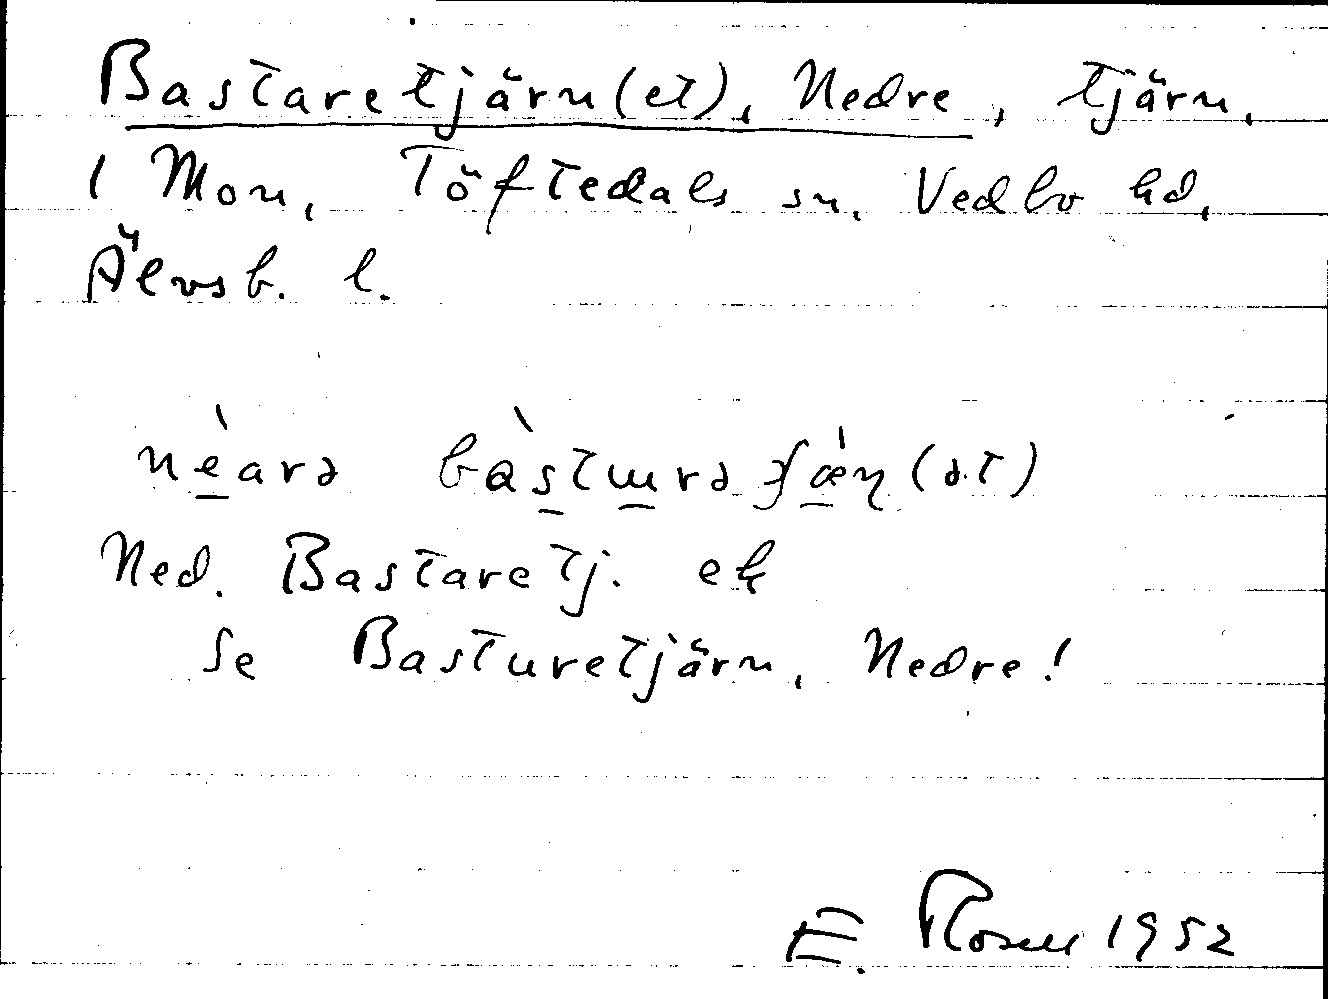 Bastaretjärn(et), Nedre, tjärn,
i Mon, Töftedals sn, Vedbo hd,
Älvsb. l.
nèarə bàstɯrəʃæ̀ɳ(ət)
Ned. Bastaretj. ek
Se Basturetjärn, Nedre!
E. Rosell 1952